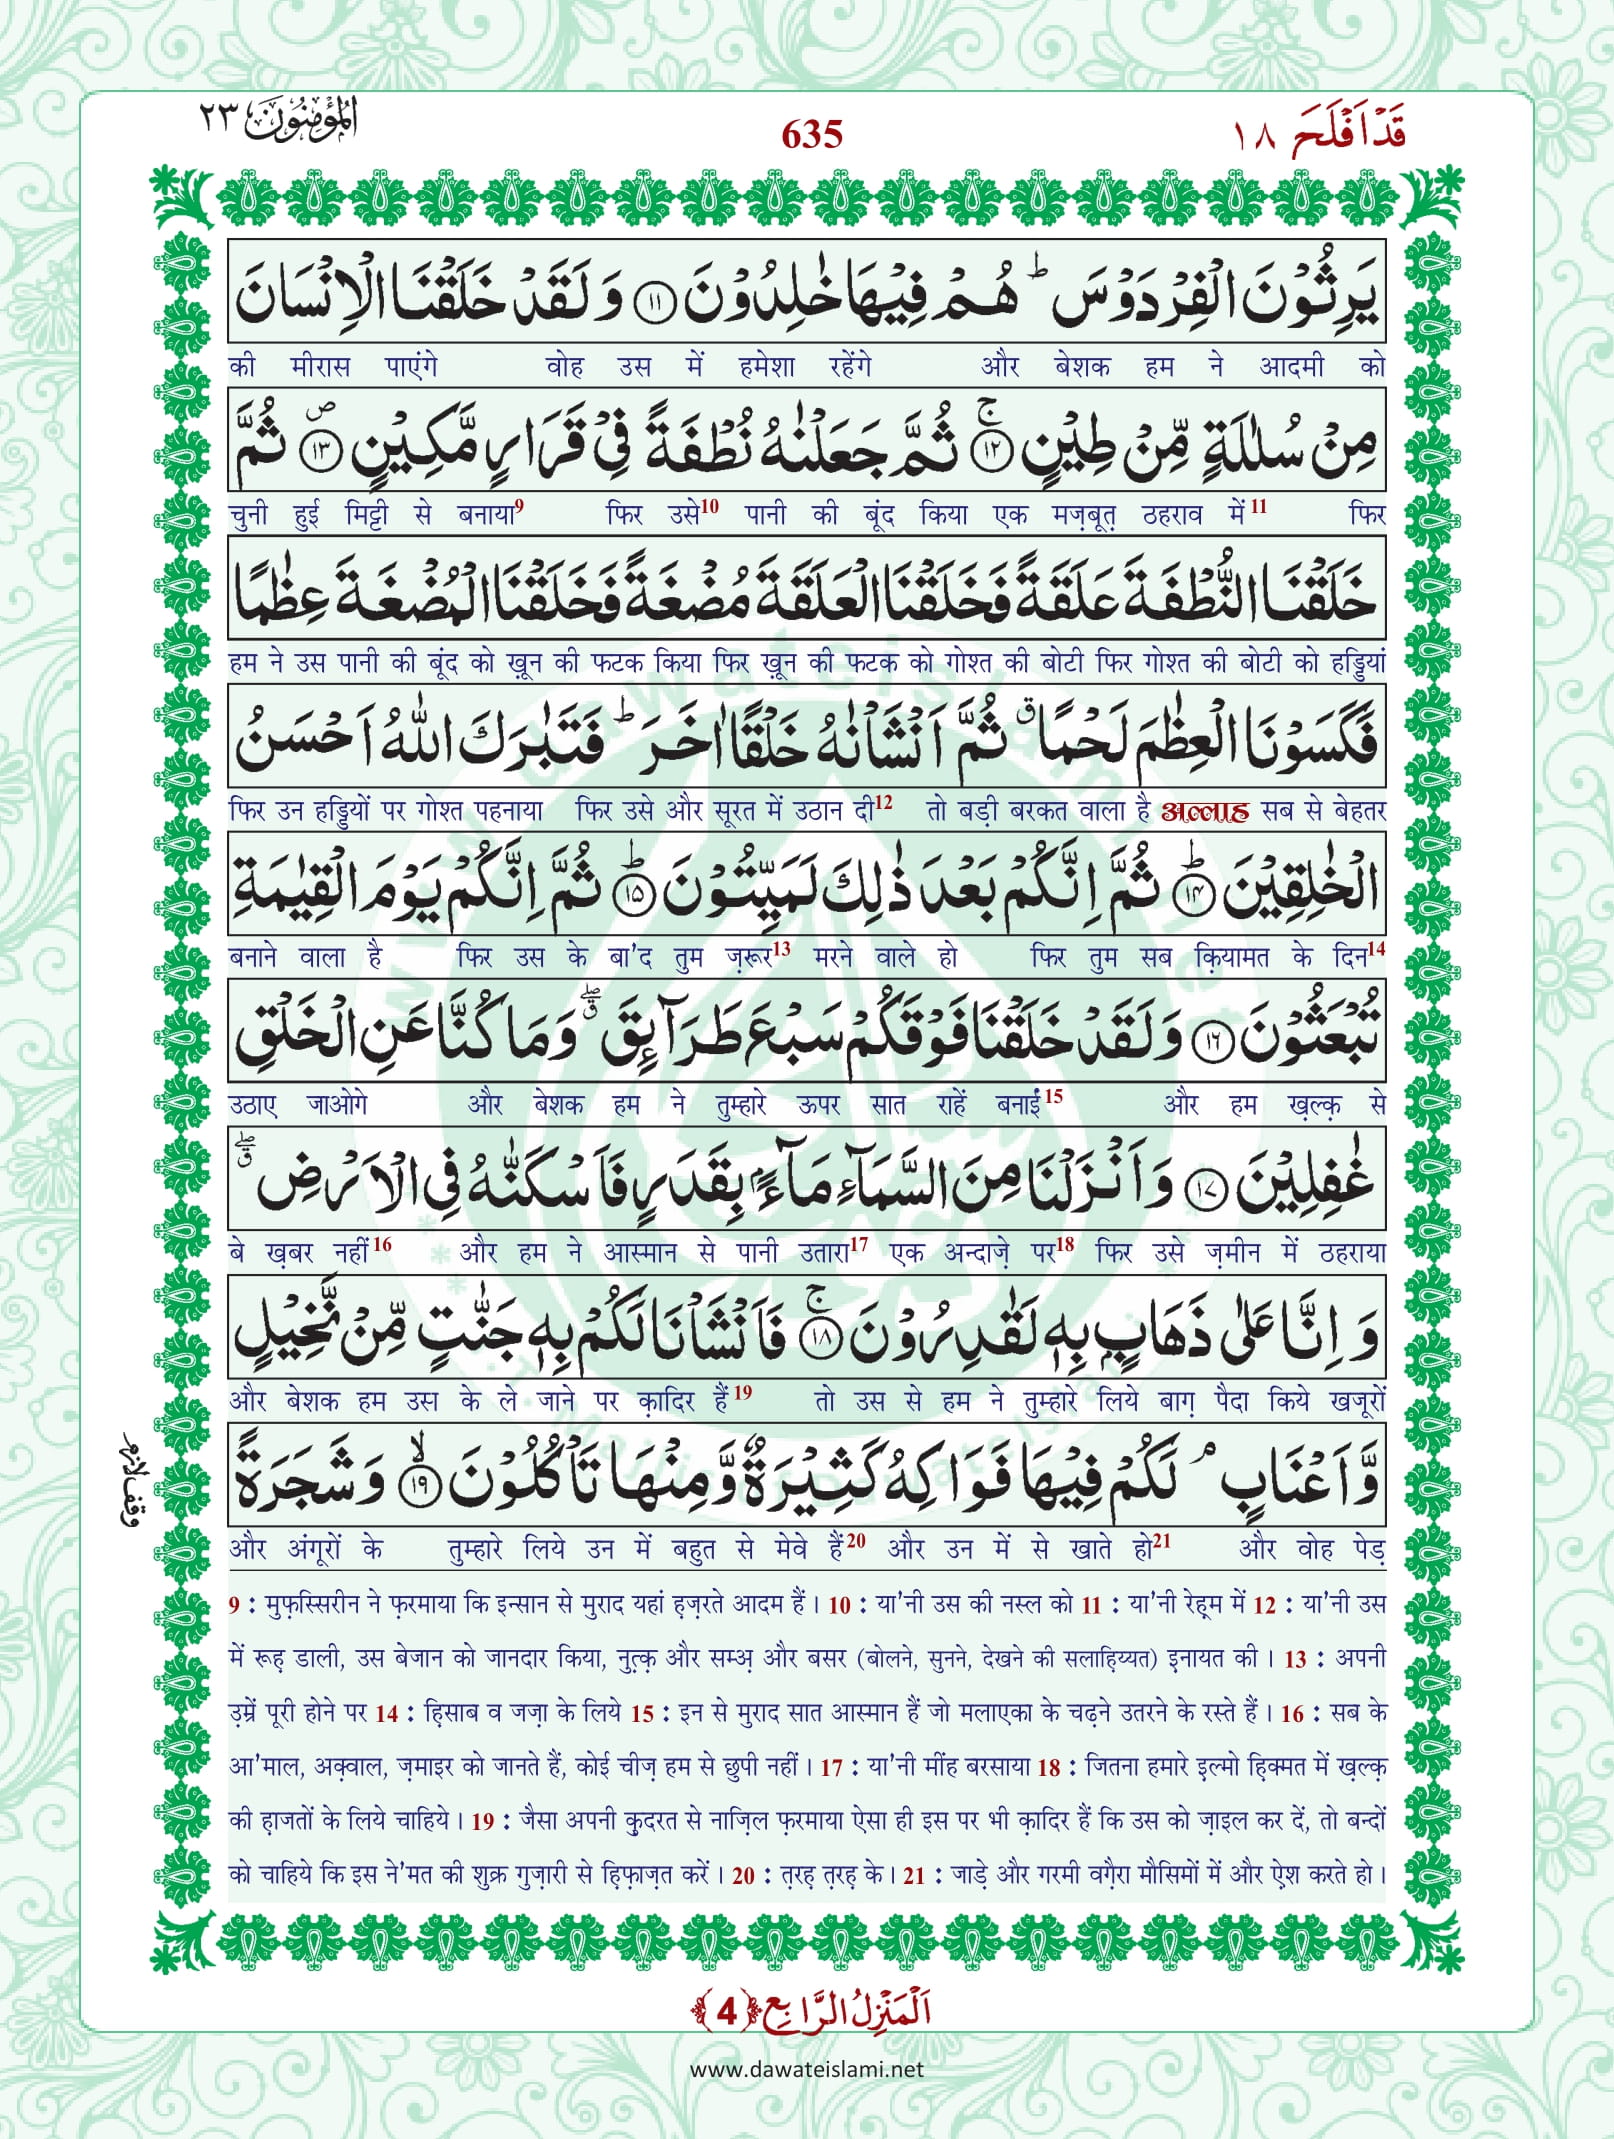 قَدْ اَفْلَحَ ١٨
635
اَلْمُؤْمِنُوْنَ ٢٣
يَرِثُوْنَ الْفِرْدَوْسَ ؕ هُمْ فِيْهَا خٰلِدُوْنَ ﴿۱۱﴾ وَ لَقَدْ خَلَقْنَا الْاِنْسَانَ
की मीरास पाएंगे वोह उस में हमेशा रहेंगे और बेशक हम ने आदमी को
مِنْ سُلٰلَةٍ مِّنْ طِيْنٍ ﴿۱۲﴾ۚ ثُمَّ جَعَلْنٰهُ نُطْفَةً فِيْ قَرَارٍ مَّكِيْنٍ ﴿۱۳﴾۪ ثُمَّ
चुनी हुई मिट्टी से बनाया9 फिर उसे10 पानी की बूंद किया एक मज़बूत़ ठहराव में11 फिर
خَلَقْنَا النُّطْفَةَ عَلَقَةً فَخَلَقْنَا الْعَلَقَةَ مُضْغَةً فَخَلَقْنَا الْمُضْغَةَ عِظٰمًا
हम ने उस पानी की बूंद को ख़ून की फटक किया फिर ख़ून की फटक को गोश्त की बोटी फिर गोश्त की बोटी को हड्डियां
فَكَسَوْنَا الْعِظٰمَ لَحْمًا ۗ ثُمَّ اَنْشَاْنٰهُ خَلْقًا اٰخَرَ ؕ فَتَبٰرَكَ اللّٰهُ اَحْسَنُ
फिर उन हड्डियों पर गोश्त पहनाया फिर उसे और सूरत में उठान दी12 तो बड़ी बरकत वाला है अल्लाह सब से बेहतर
الْخٰلِقِيْنَ ﴿۱۴﴾ؕ ثُمَّ اِنَّكُمْ بَعْدَ ذٰلِكَ لَمَيِّتُوْنَ ﴿۱۵﴾ؕ ثُمَّ اِنَّكُمْ يَوْمَ الْقِيٰمَةِ
बनाने वाला है फिर उस के बा'द तुम ज़रूर13 मरने वाले हो फिर तुम सब क़ियामत के दिन14
تُبْعَثُوْنَ ﴿۱۶﴾ وَ لَقَدْ خَلَقْنَا فَوْقَكُمْ سَبْعَ طَرَآئِقَ ۖۗ وَ مَا كُنَّا عَنِ الْخَلْقِ
उठाए जाओगे और बेशक हम ने तुम्हारे ऊपर सात राहें बनाईं15 और हम ख़ल्क़ से
غٰفِلِيْنَ ﴿۱۷﴾ وَ اَنْزَلْنَا مِنَ السَّمَآءِ مَآءًۢ بِقَدَرٍ فَاَسْكَنّٰهُ فِي الْاَرْضِ ۖۗ
बे ख़बर नहीं16 और हम ने आस्मान से पानी उतारा17 एक अन्दाज़े पर18 फिर उसे ज़मीन में ठहराया
وَ اِنَّا عَلٰى ذَهَابٍۭ بِهٖ لَقٰدِرُوْنَ ﴿۱۸﴾ۚ فَاَنْشَاْنَا لَكُمْ بِهٖ جَنّٰتٍ مِّنْ نَّخِيْلٍ
और बेशक हम उस के ले जाने पर क़ादिर हैं19 तो उस से हम ने तुम्हारे लिये बाग़ पैदा किये खजूरों
وَّ اَعْنَابٍ ۘ لَكُمْ فِيْهَا فَوَاكِهُ كَثِيْرَةٌ وَّ مِنْهَا تَاْكُلُوْنَ ﴿۱۹﴾ۙ وَ شَجَرَةً
وقف لازم
और अंगूरों के तुम्हारे लिये उन में बहुत से मेवे हैं20 और उन में से खाते हो21 और वोह पेड़
9 : मुफ़स्सिरीन ने फ़रमाया कि इन्सान से मुराद यहां ह़ज़रते आदम हैं। 10 : या'नी उस की नस्ल को 11 : या'नी रेह़्म में 12 : या'नी उस
में रूह़ डाली, उस बेजान को जानदार किया, नुत़्क़ और सम्अ़ और बसर (बोलने, सुनने, देखने की सलाहि़य्यत) इनायत की। 13 : अपनी
उ़म्रें पूरी होने पर 14 : हि़साब व जज़ा के लिये 15 : इन से मुराद सात आस्मान हैं जो मलाएका के चढ़ने उतरने के रस्ते हैं। 16 : सब के
आ'माल, अक़्वाल, ज़माइर को जानते हैं, कोई चीज़ हम से छुपी नहीं। 17 : या'नी मींह बरसाया 18 : जितना हमारे इ़ल्मो हि़क्मत में ख़ल्क़
की ह़ाजतों के लिये चाहिये। 19 : जैसा अपनी क़ुदरत से नाज़िल फ़रमाया ऐसा ही इस पर भी क़ादिर हैं कि उस को ज़ाइल कर दें, तो बन्दों
को चाहिये कि इस ने'मत की शुक्र गुज़ारी से हि़फ़ाज़त करें। 20 : त़रह़ त़रह़ के। 21 : जाड़े और गरमी वग़ैरा मौसिमों में और ऐ़श करते हो।
اَلْمَنْزِلُ الرَّابِع ﴿4﴾
www.dawateislami.net